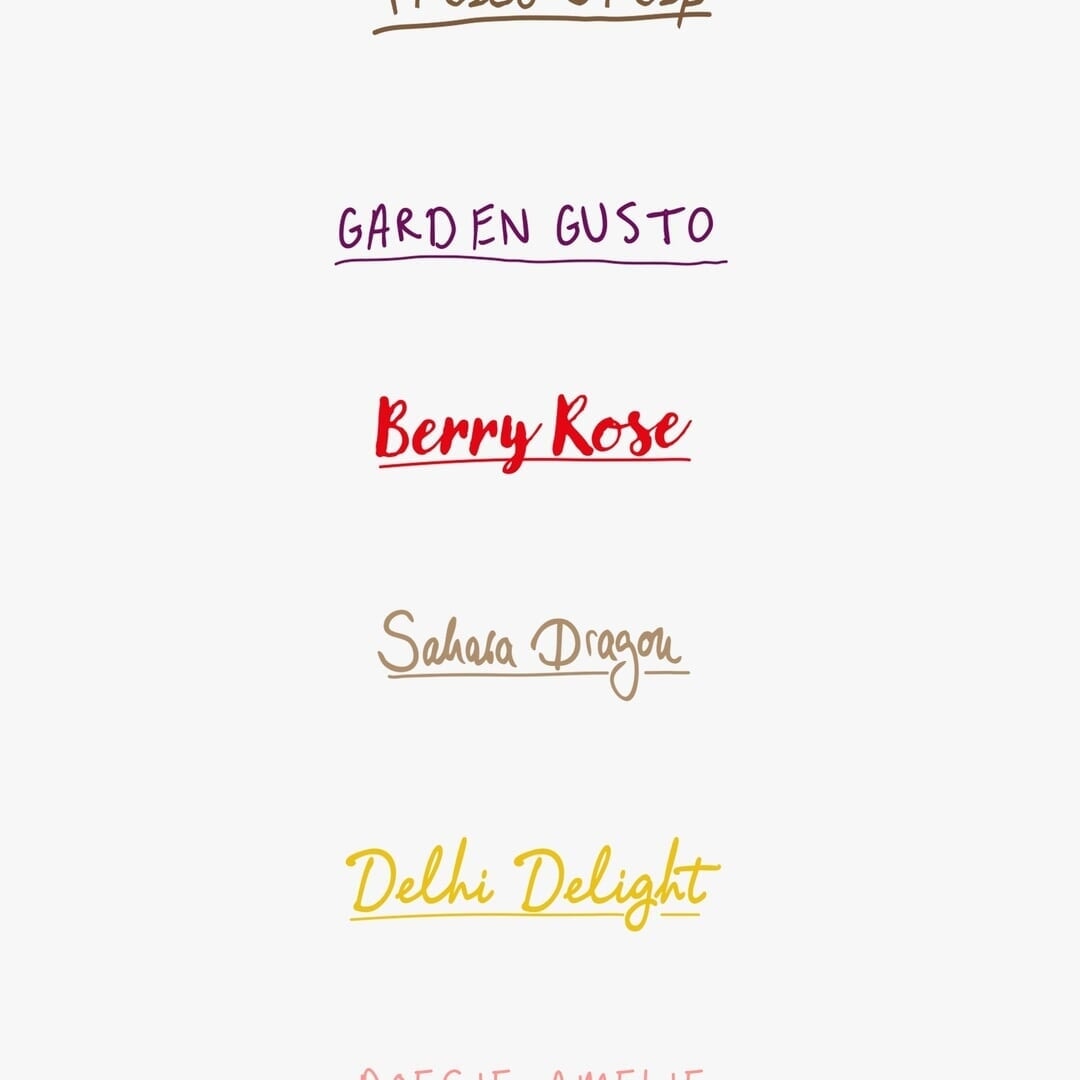 GARDEN GUSTO
Berry Rose
Sahara Dragon
Delhi Delight
POESIE AMELIE